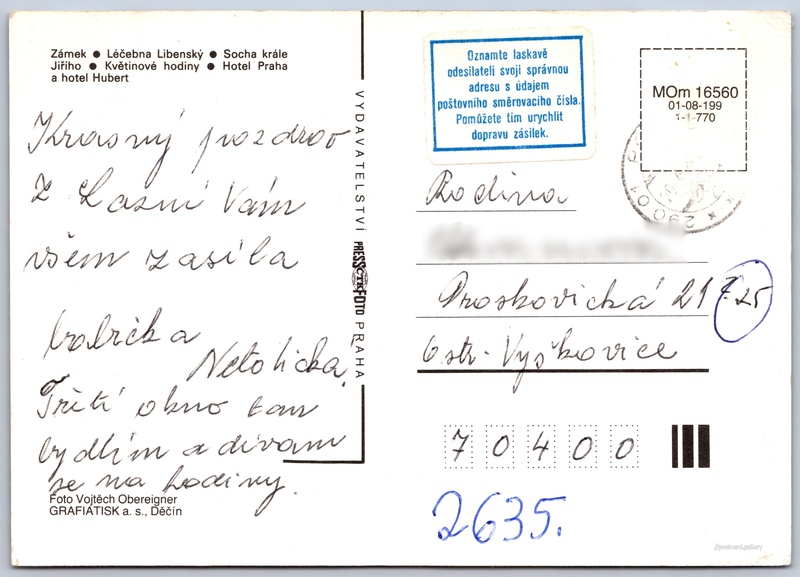 Zámek ● Léčebna Libenský ● Socha krále
Jiřího ● Květinové hodiny ● Hotel Praha
a hotel Hubert
Krasný pozdrav
z Lazní Vám
všem zasíla
Netolická.
Třetí okno tam
bydlím a dívam
se na hodiny.
Foto Vojtěch Obereigner
GRAFIATISK a. s., Děčín
VYDAVATELSTVÍ PRESSFOTO PRAHA
ČTK
Oznamte laskavě
odesílateli svoji správnou
adresu s údajem
poštovního směrovacího čísla.
Pomůžete tím urychlit
dopravu zásilek.
MOm 16560
01-08-199
1-1-770
290 01
Rodina
Proskovická 21
č.25
Ostr. Vyškovice
70400
2635.
//postcard.gallery